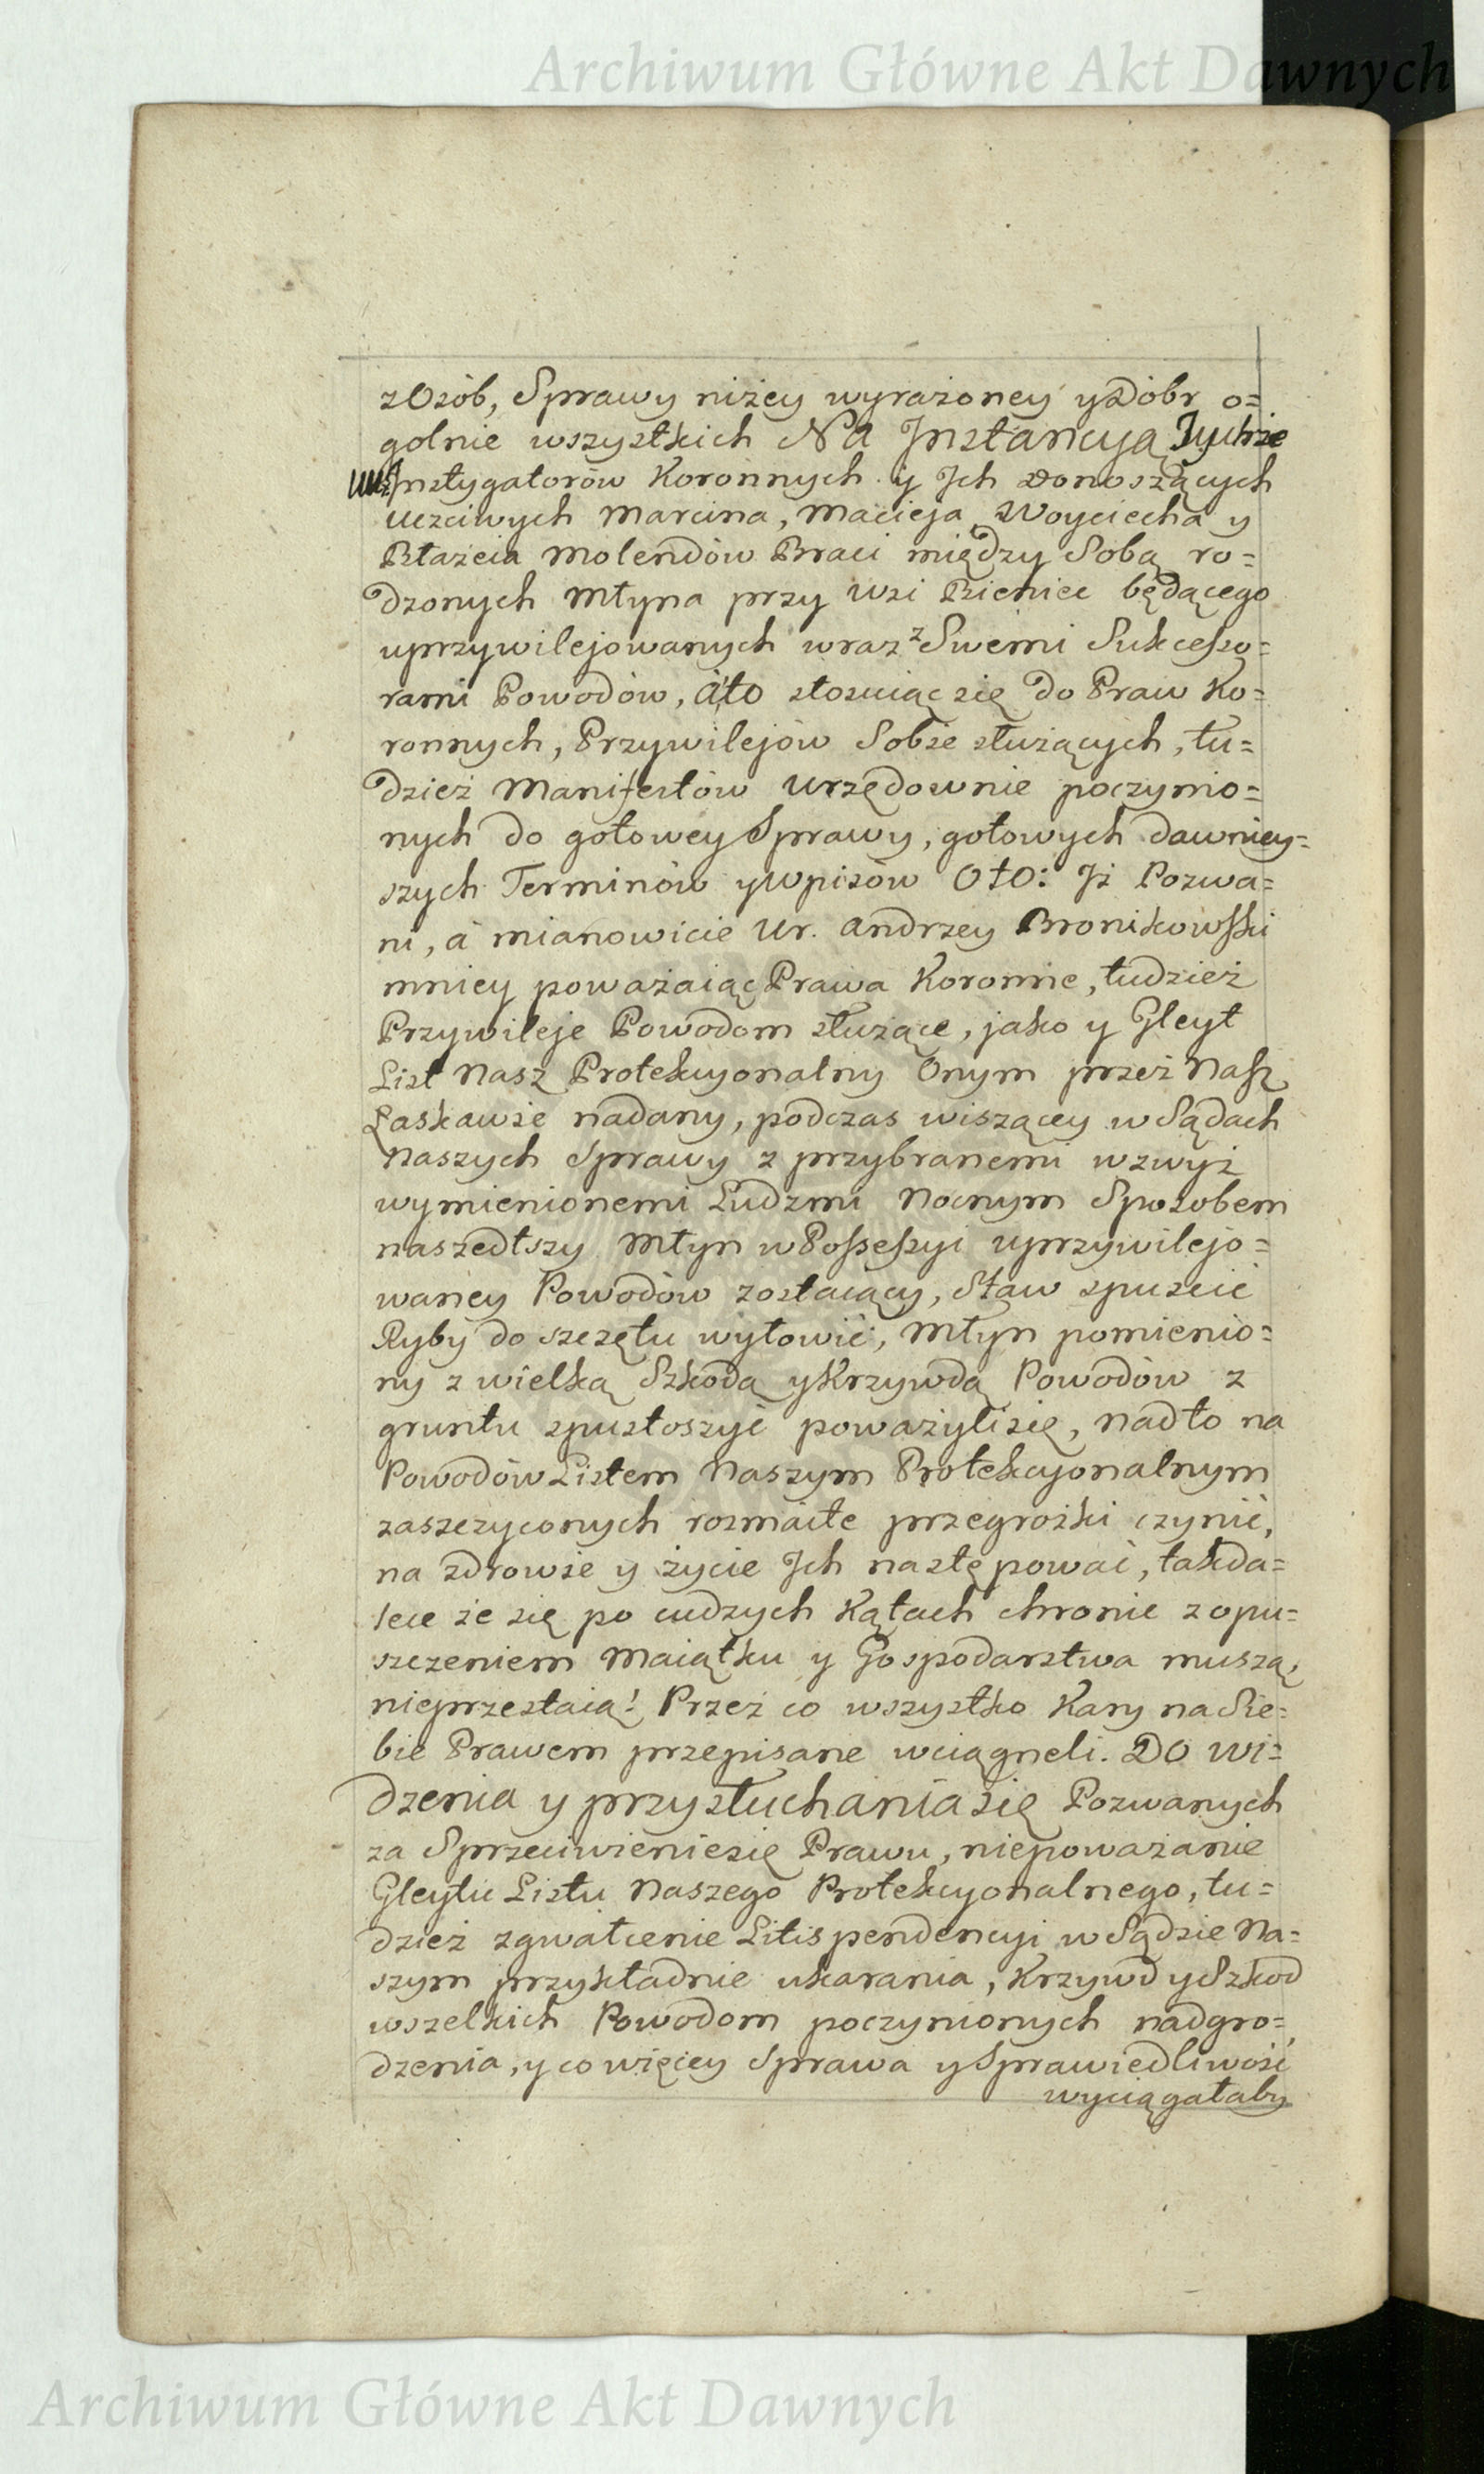 Archiwum Główne Akt Dawnych
z Osób, Sprawy niżey wyrażoney y Dóbr o=
golnie wszystkich Na Instancyą Tychże
Instygatorów Koronnych y Ich Donoszących
Uczciwych Marcina, Macieja, Woyciecha y
Błażeia Molendów Braci między Sobą ro=
dzonych Młyna przy Wsi Bieniec będącego
uprzywilejowanych wraz z Swemi Sukcesso=
rami Powodów, Ato stosuiąc się do Praw Ko=
ronnych, Przywilejów Sobie służących, tu=
dzież Manifestów Urzędownie poczynio=
nych do gotowey Sprawy, gotowych dawniey=
szych Terminów y Wpisów Oto: Iż Pozwa=
ni, á mianowicie Ur. Andrzey Bronikowski
mniey poważaiąc Prawa Koronne, tudzież
Przywileje Powodom służące, jako y Gleyt
List Nasz Protekcyonalny Onym przez Nasz
Łaskawie nadany, podczas wiszącey w Sądach
Naszych Sprawy z przybranemi wzwyż
wymienionemi Ludzmi Nocnym Sposobem
naszedłszy Młyn w Possessyi uprzywilejo=
waney Powodów zostaiący, Staw spuscić
Ryby do szczętu wyłowić, Młyn pomienio=
ny z wielką Szkodą y Krzywdą Powodów z
gruntu spustoszyć poważyli się, nadto na
Powodów Listem Naszym Protekcyonalnym
zaszczyconych rozmaite przegrożki czynić,
na zdrowie y życie Ich następować, takda=
lece że się po cudzych Kątach chronic z opu=
szczeniem Maiątku y Gospodarstwa muszą,
nieprzestaią! Przez co wszystko Kary na Sie=
bie Prawem przepisane wciągneli. Do Wi=
dzenia y przysłuchania się Pozwanych
za Sprzeciwienie się Prawu, niepoważanie
Gleytu Listu Naszego Protekcyonalnego, tu=
dzież zgwałcenie Litispendencyi w Sądzie Na=
szym przykładnie ukarania, Krzywd y Szkod
wszelkich Powodom poczynionych nadgro=
dzenia, y co więcey Sprawa y Sprawiedliwość
wyciągałaby
Archiwum Główne Akt Dawnych